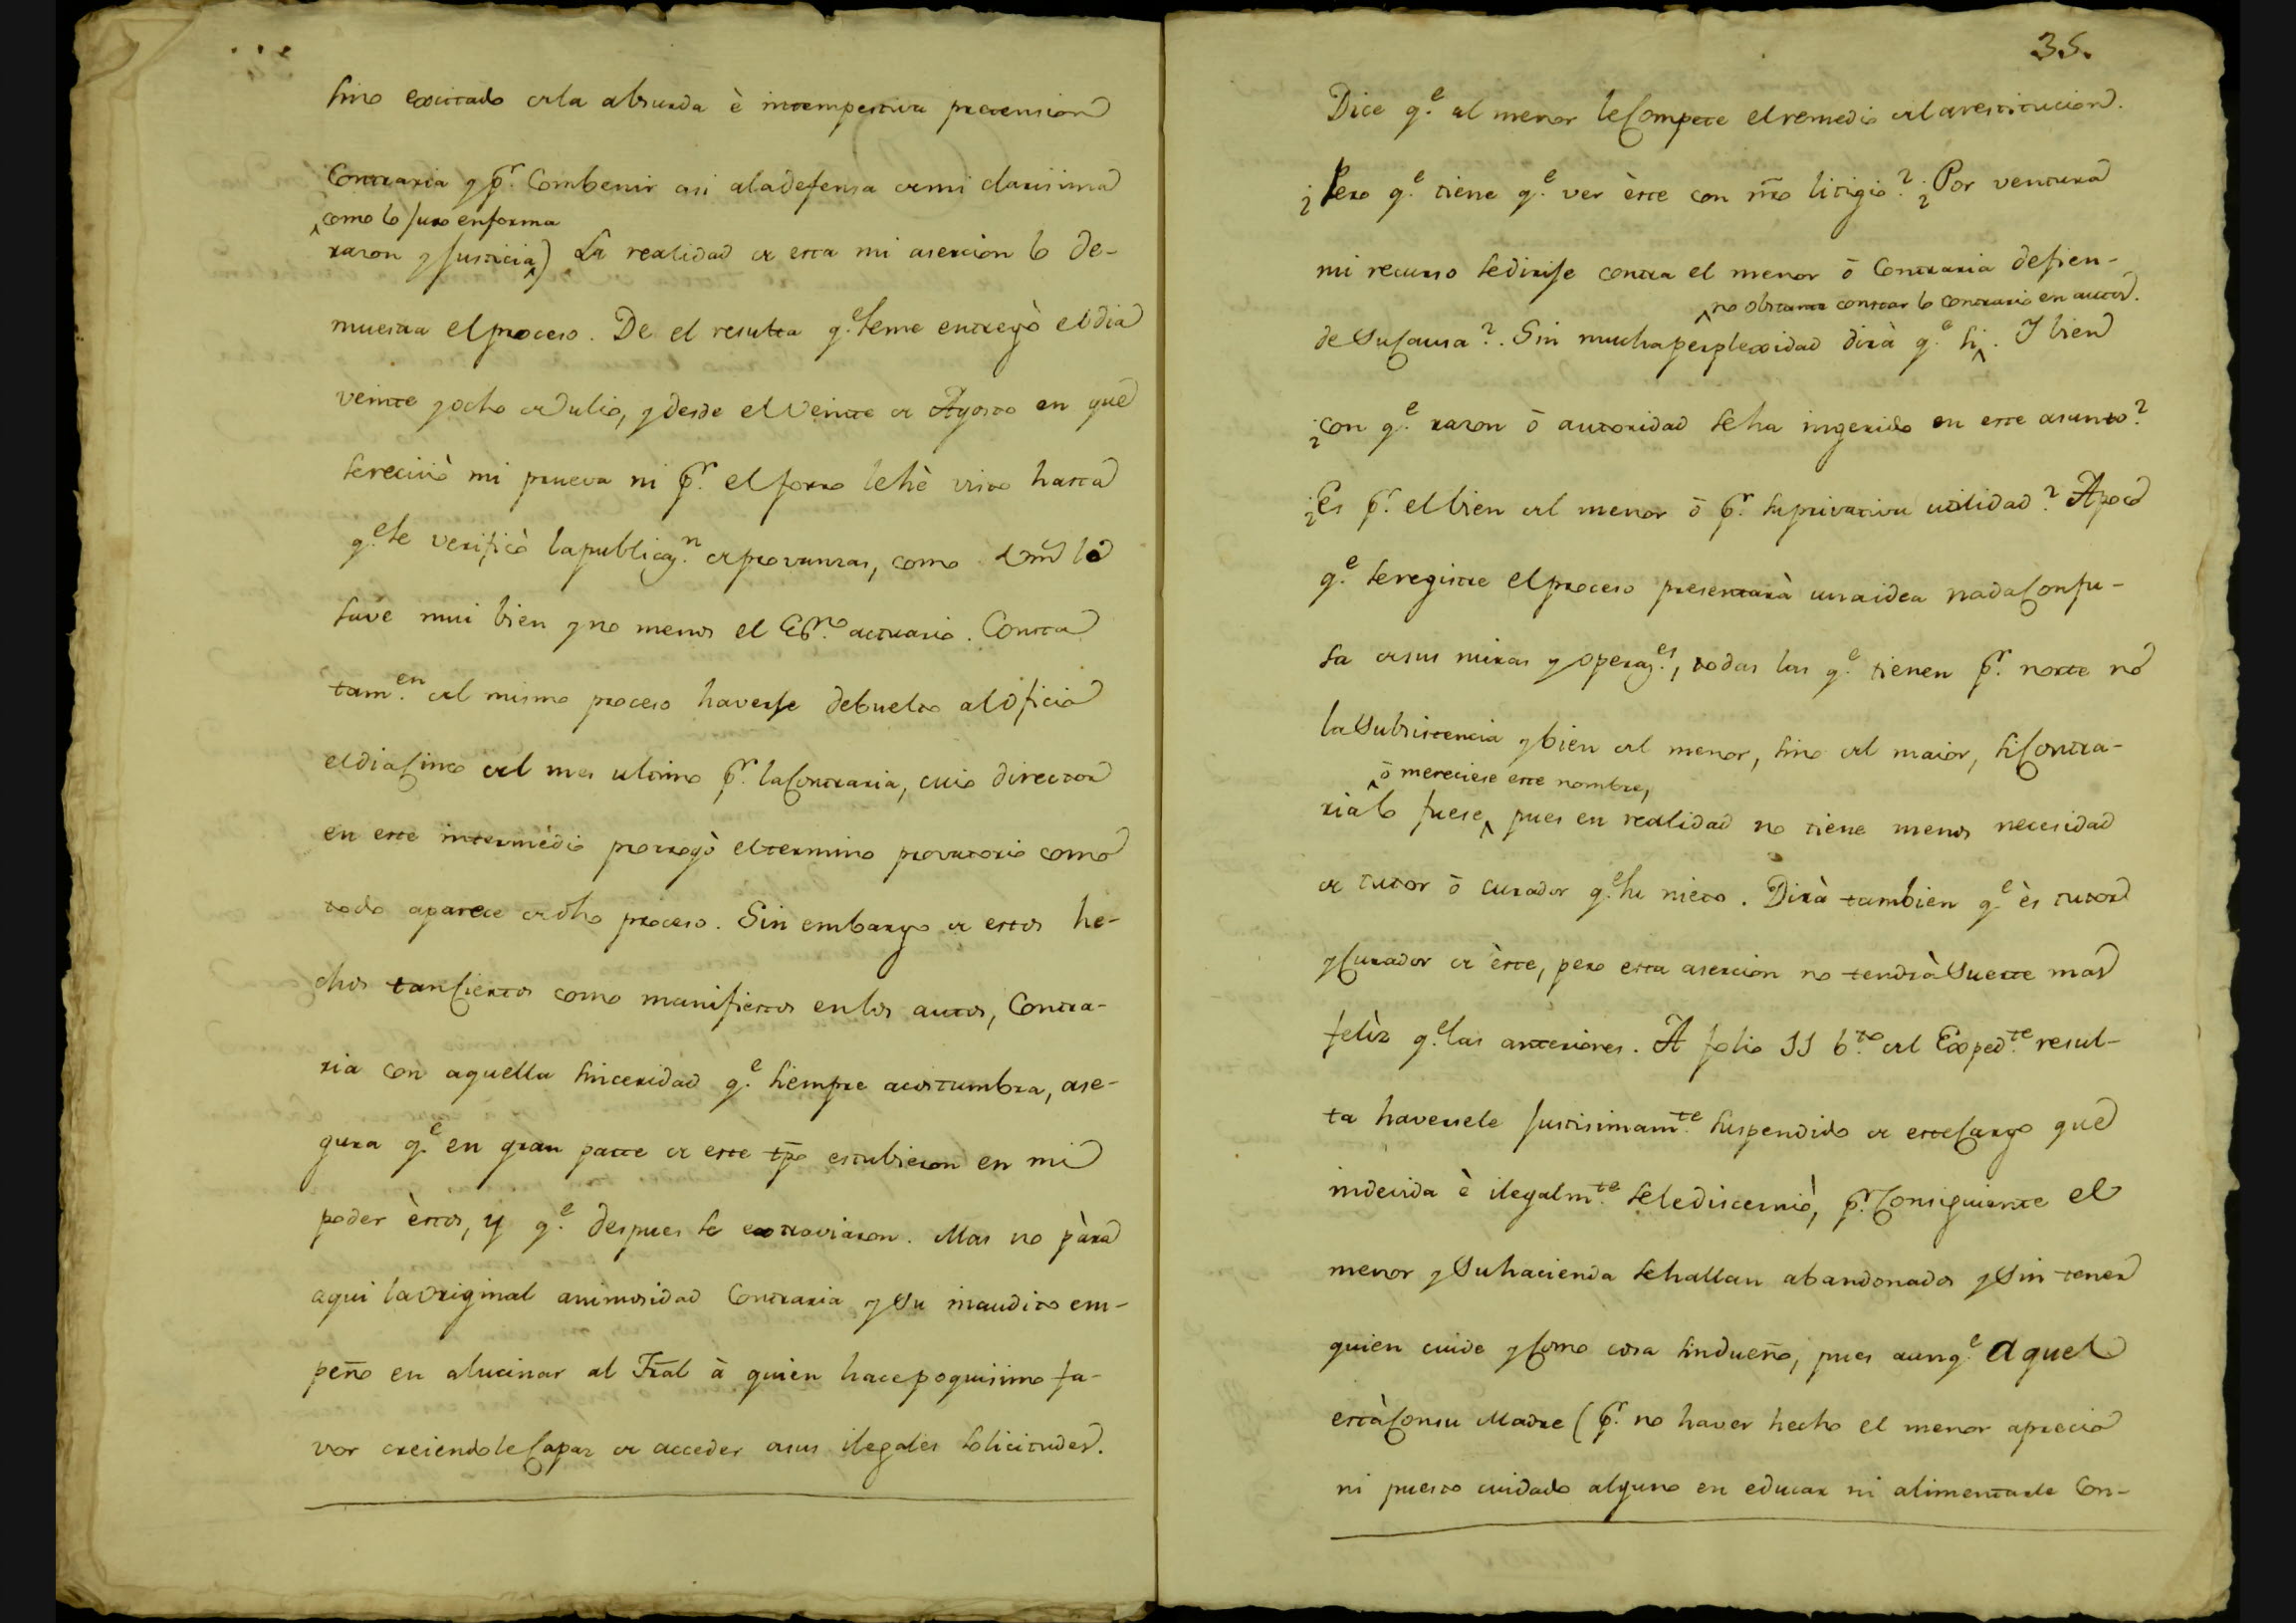 sino excitado de la absurda è intempestiva pretension
Contraria y pr. Combenir asi ala defensa de mi clarisima
como lo juro en forma
razon y justicia) La realidad de esta mi asercion lo de-
muestra el proceso. De el resulta q.e se me entregò el dia
veinte y ocho de Julio, y desde el Veinte de Agosto en que
se recivió mi prueva ni pr. el forro le hè visto hasta
q.e se verificò la publicaz.n de provanzas, como Vmd lo
save mui bien y no menos el Esno. actuario. Consta
tam.en del mismo proceso haverse debuelto al Oficio
el dia Cinco del mes ultimo pr. la Contraria, cuio director
en este intermèdio prorrogò el termino provatorio como
todo aparece de dho proceso. Sin embargo de estos he-
chos tan Ciertos como manifiestos en los autos, Contra-
ria con aquella sinceridad q.e siempre acostumbra, ase-
gura q.e en gran parte de este tpo estubieron en mi
poder èstos, y q.e despues se extraviaron. Mas no pàra
aqui la Original animosidad Contraria y Su inaudito em-
peño en alucinar al Tral à quien hace poquisimo fa-
vor creiendole Capaz de acceder asus ilegales solicitudes.
35.
Dice q.e al menor le Compete el remedio de la restitucion.
¿Pero q.e tiene q.e ver èste con nro litigio? ¿Por ventura
mi recurso se dirije contra el menor ò Contraria defien-
no obstante constar lo contrario en autos.
de Su Causa? Sin mucha perplexidad dirà q.e si. Y bien
¿con q.e razon ò autoridad se ha ingerido en este asunto?
¿Es pr. el bien del menor ò pr. su privativa utilidad? A poco
q.e se registre el proceso presentarà una idea nada Confu-
sa de sus miras y operaz.es, todas las q.e tienen pr. norte no
la Subsistencia y bien del menor, sino del maior, si Contra-
ò mereciese este nombre,
ria lo fuese, pues en realidad no tiene menos necesidad
de tutor ò curador q.e su nieto. Dirà tambien q.e ès tutor
y Curador de èste, pero esta asercion no tendrà Suerte mas
felìz q.e las anteriores. A folio 11 b.to del Exped.te resul-
ta haversele justisimam.te suspendido de este Cargo que
indevida è ilegalm.te se le discerniò, pr. Consiguiente el
menor y Su hacienda se hallan abandonados y Sin tener
quien cuide y Como cosa sin dueño, pues aunq.e aquel
està Con su Madre (pr. no haver hecho el menor aprecio
ni puesto cuidado alguno en educar ni alimentarle Con-